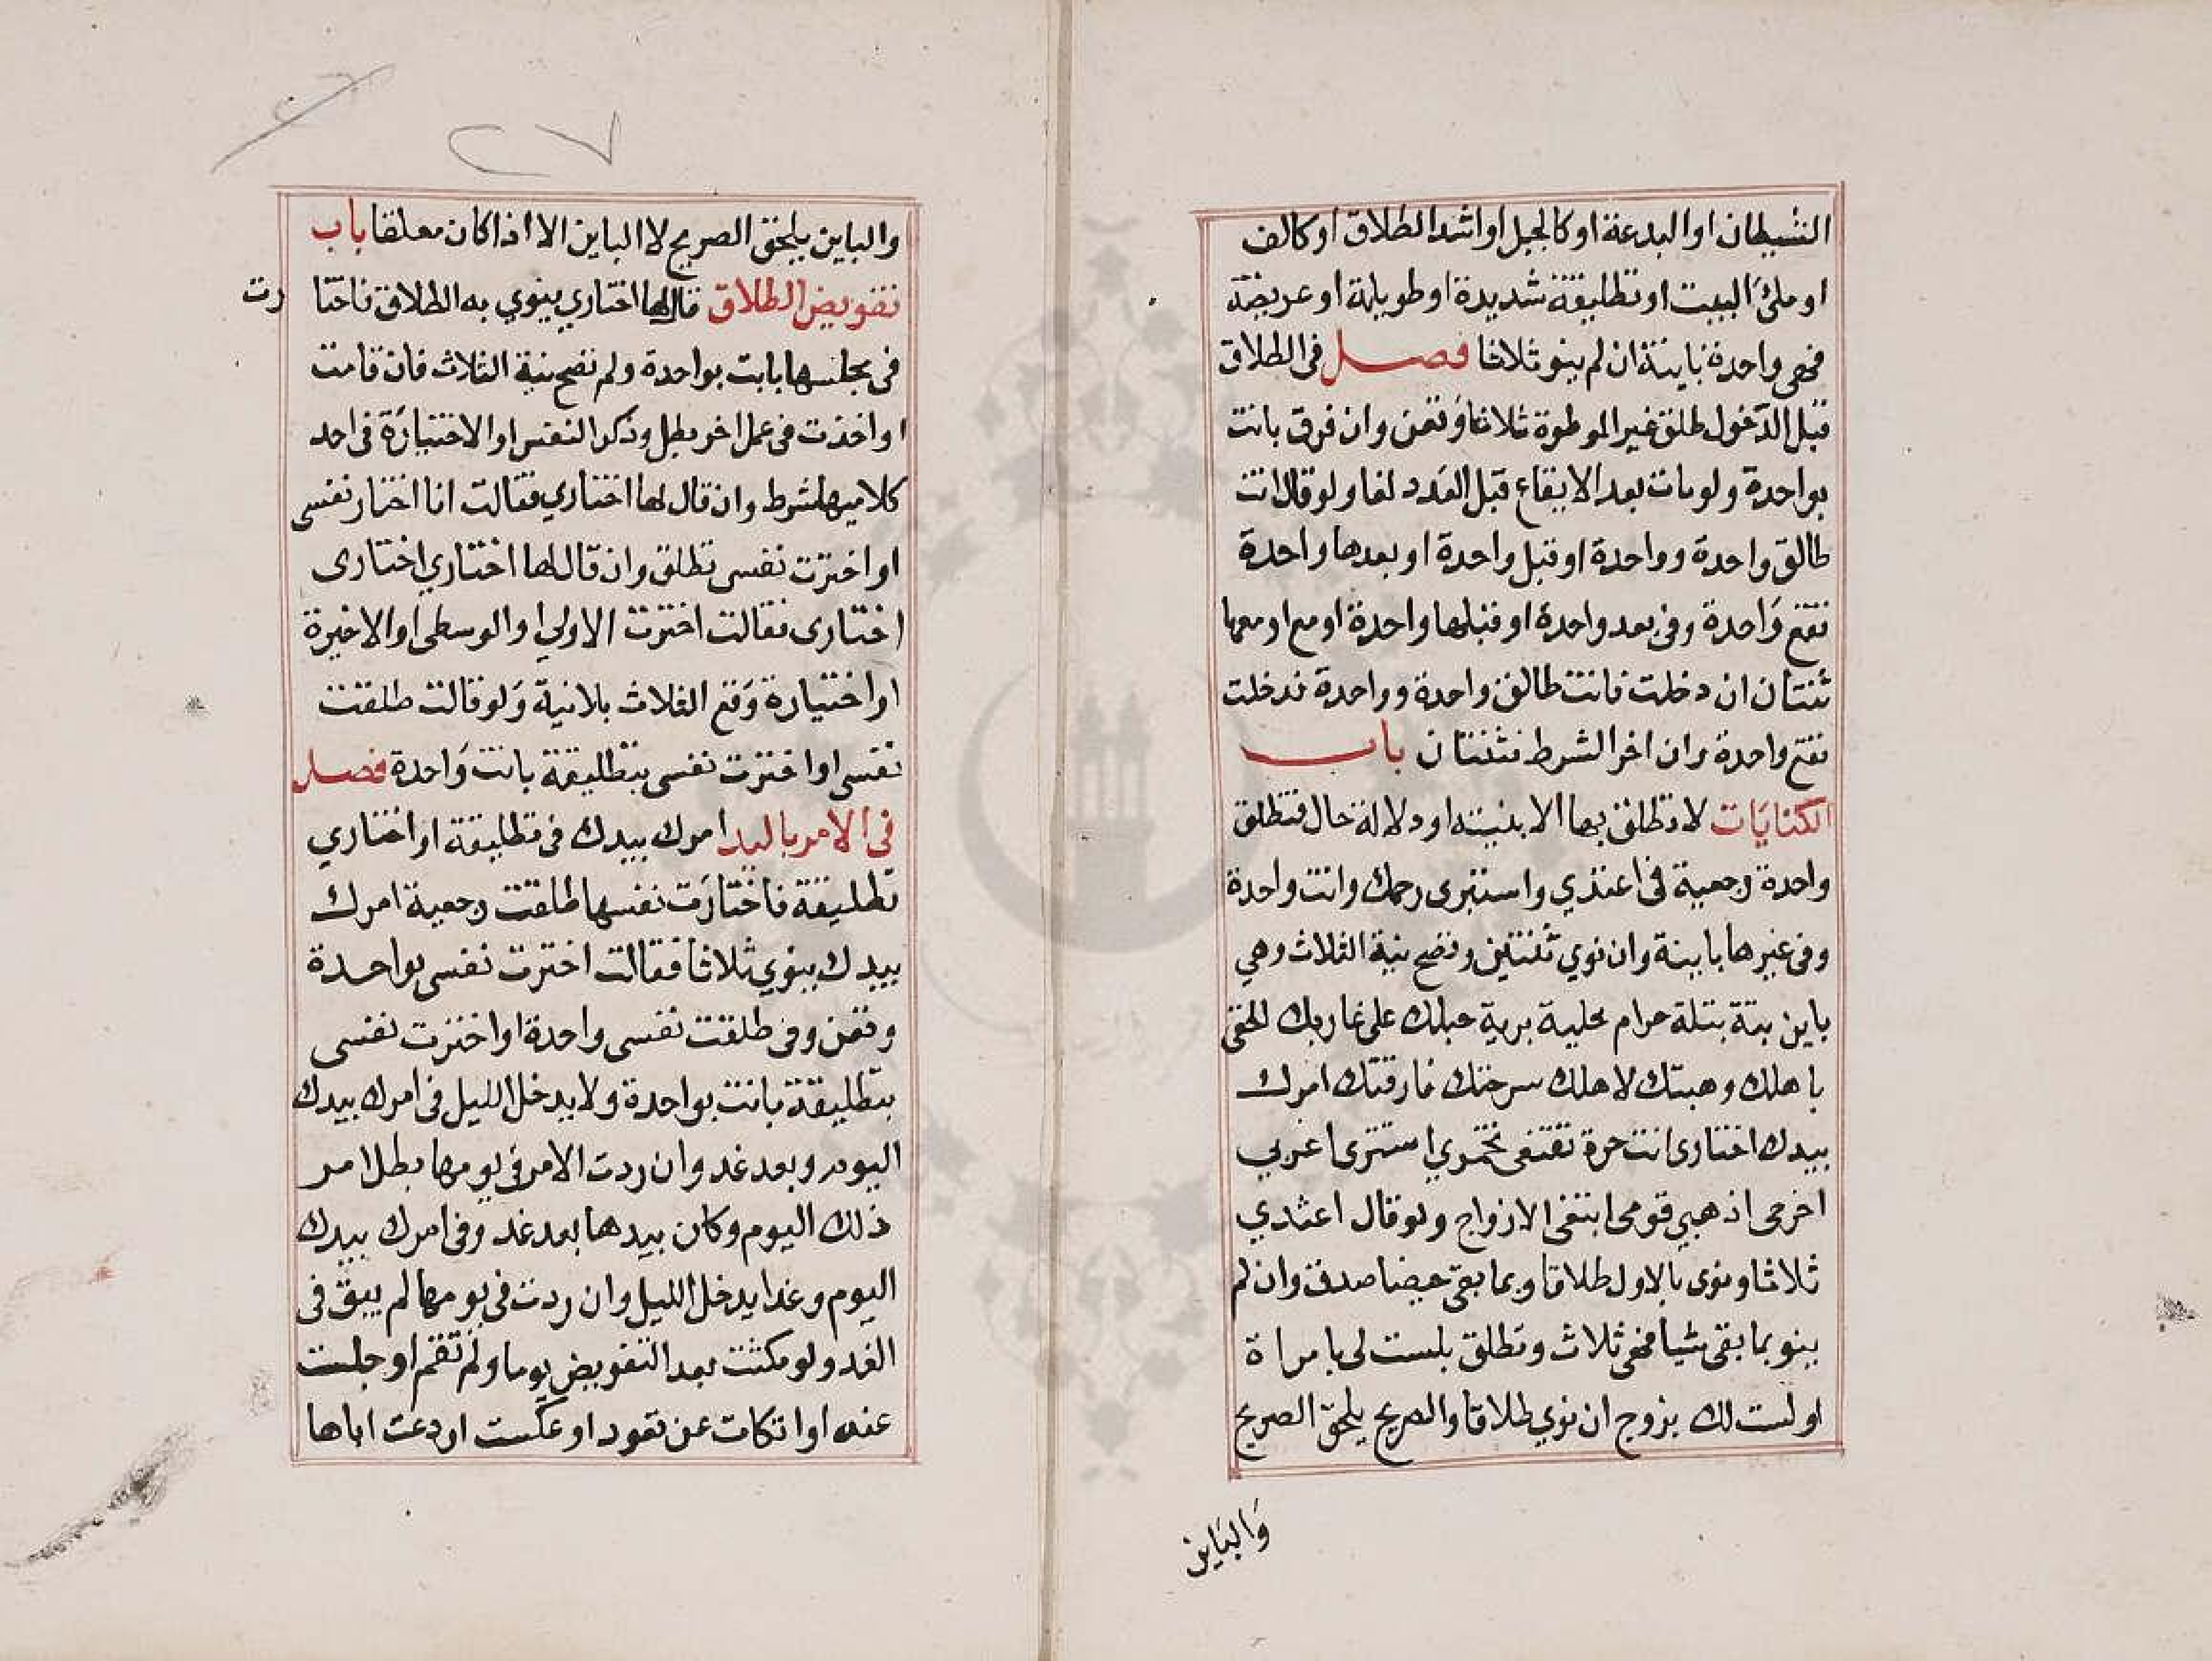 الشيطان او البدعة او كالجبل او اشد الطلاق او كالف
او ملئ البيت او تطليقة شديدة او طويلة او عريضة
فهي واحدة باينة ان لم ينو ثلاثا فصل في الطلاق
قبل الدخول طلق غير الموطوة ثلاثا وقعن وان فرق بانت
بواحدة ولو مات بعد الايقاع قبل العدد لغا ولو قال انت
طالق واحدة وواحدة او قبل واحدة او بعدها واحدة
تقع واحدة وفي بعد واحدة او قبلها واحدة او مع او معها
ثنتان ان دخلت فانت طالق واحدة وواحدة فدخلت
تقع واحدة وان اخر الشرط فثنتان باب
الكنايات لا تطلق بها الا بنيته او دلالة حال فتطلق
واحدة رجعية في اعتدي واستبرى رحمك وانت واحدة
وفي غيرها باينة وان نوي ثنتين وتصح نية الثلاث وهي
باين بتة بتلة حرام خلية برية حبلك على غاربك الحقى
باهلك وهبتك لاهلك سرحتك فارقتك امرك
بيدك اختارى انت حرة تقنعى تخمري استترى اغربي
اخرجى اذهبي قومى ابتغى الازواج ولو قال اعتدي
ثلاثا ونوى بالاول طلاقا وبما بقي حيضا صدق وان لم
ينو بما بقى شيا فهي ثلاث وتطلق بلست لى بامراة
او لست لك بزوج ان نوي طلاقا والصريح يلحق الصريح
والباين
والباين يلحق الصريح لا الباين الا اذا كان معلقا باب
تفويض الطلاق قال لها اختاري ينوي به الطلاق فاختارت
في مجلسها بانت بواحدة ولم تصح نية الثلاث فان قامت
او اخذت في عمل اخر بطل وذكر النفس او الاختيارة في احد
كلاميهما شرط وان قال لها اختاري فقالت انا اختار نفسى
او اخترت نفسى تطلق وان قال لها اختاري اختارى
اختارى فقالت اخترت الاولي او الوسطى او الاخيرة
او اختيارة وقع الثلاث بلا نية ولو قالت طلقت
نفسى او اخترت نفسى بتطليقة بانت واحدة فصل
في الامر باليد امرك بيدك في تطليقة او اختاري
تطليقة فاختارت نفسها طلقت رجعية امرك
بيدك ينوي ثلاثا فقالت اخترت نفسى بواحدة
وقعن وفى طلقت نفسى واحدة او اخترت نفسى
بتطليقة بانت بواحدة ولا يدخل الليل في امرك بيدك
اليوم وبعد غد وان ردت الامر في يومها بطل امر
ذلك اليوم وكان بيدها بعد غد وفى امرك بيدك
اليوم وغدا يدخل الليل وان ردت في يومها لم يبق في
الغد ولو مكثت بعد التفويض يوما ولم تقم او جلست
عنه او اتكات عن قعود او عكست او دعت اباها
٢٧